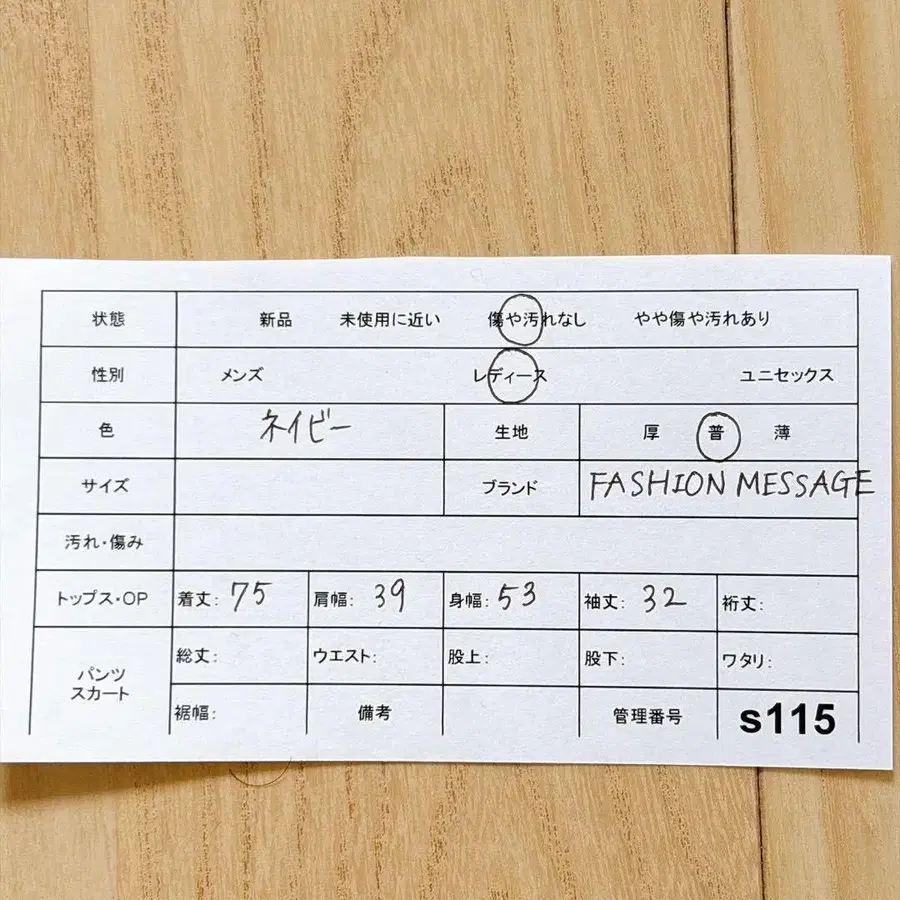 状態 新品 未使用に近い 傷や汚れなし やや傷や汚れあり
性別 メンズ レディース ユニセックス
色 ネイビー 生地 厚 普 薄
サイズ ブランド FASHION MESSAGE
汚れ・傷み
トップス・OP 着丈: 75 肩幅: 39 身幅: 53 袖丈: 32 裄丈:
パンツ
スカート
総丈: ウエスト: 股上: 股下: ワタリ:
裾幅: 備考 管理番号 s115